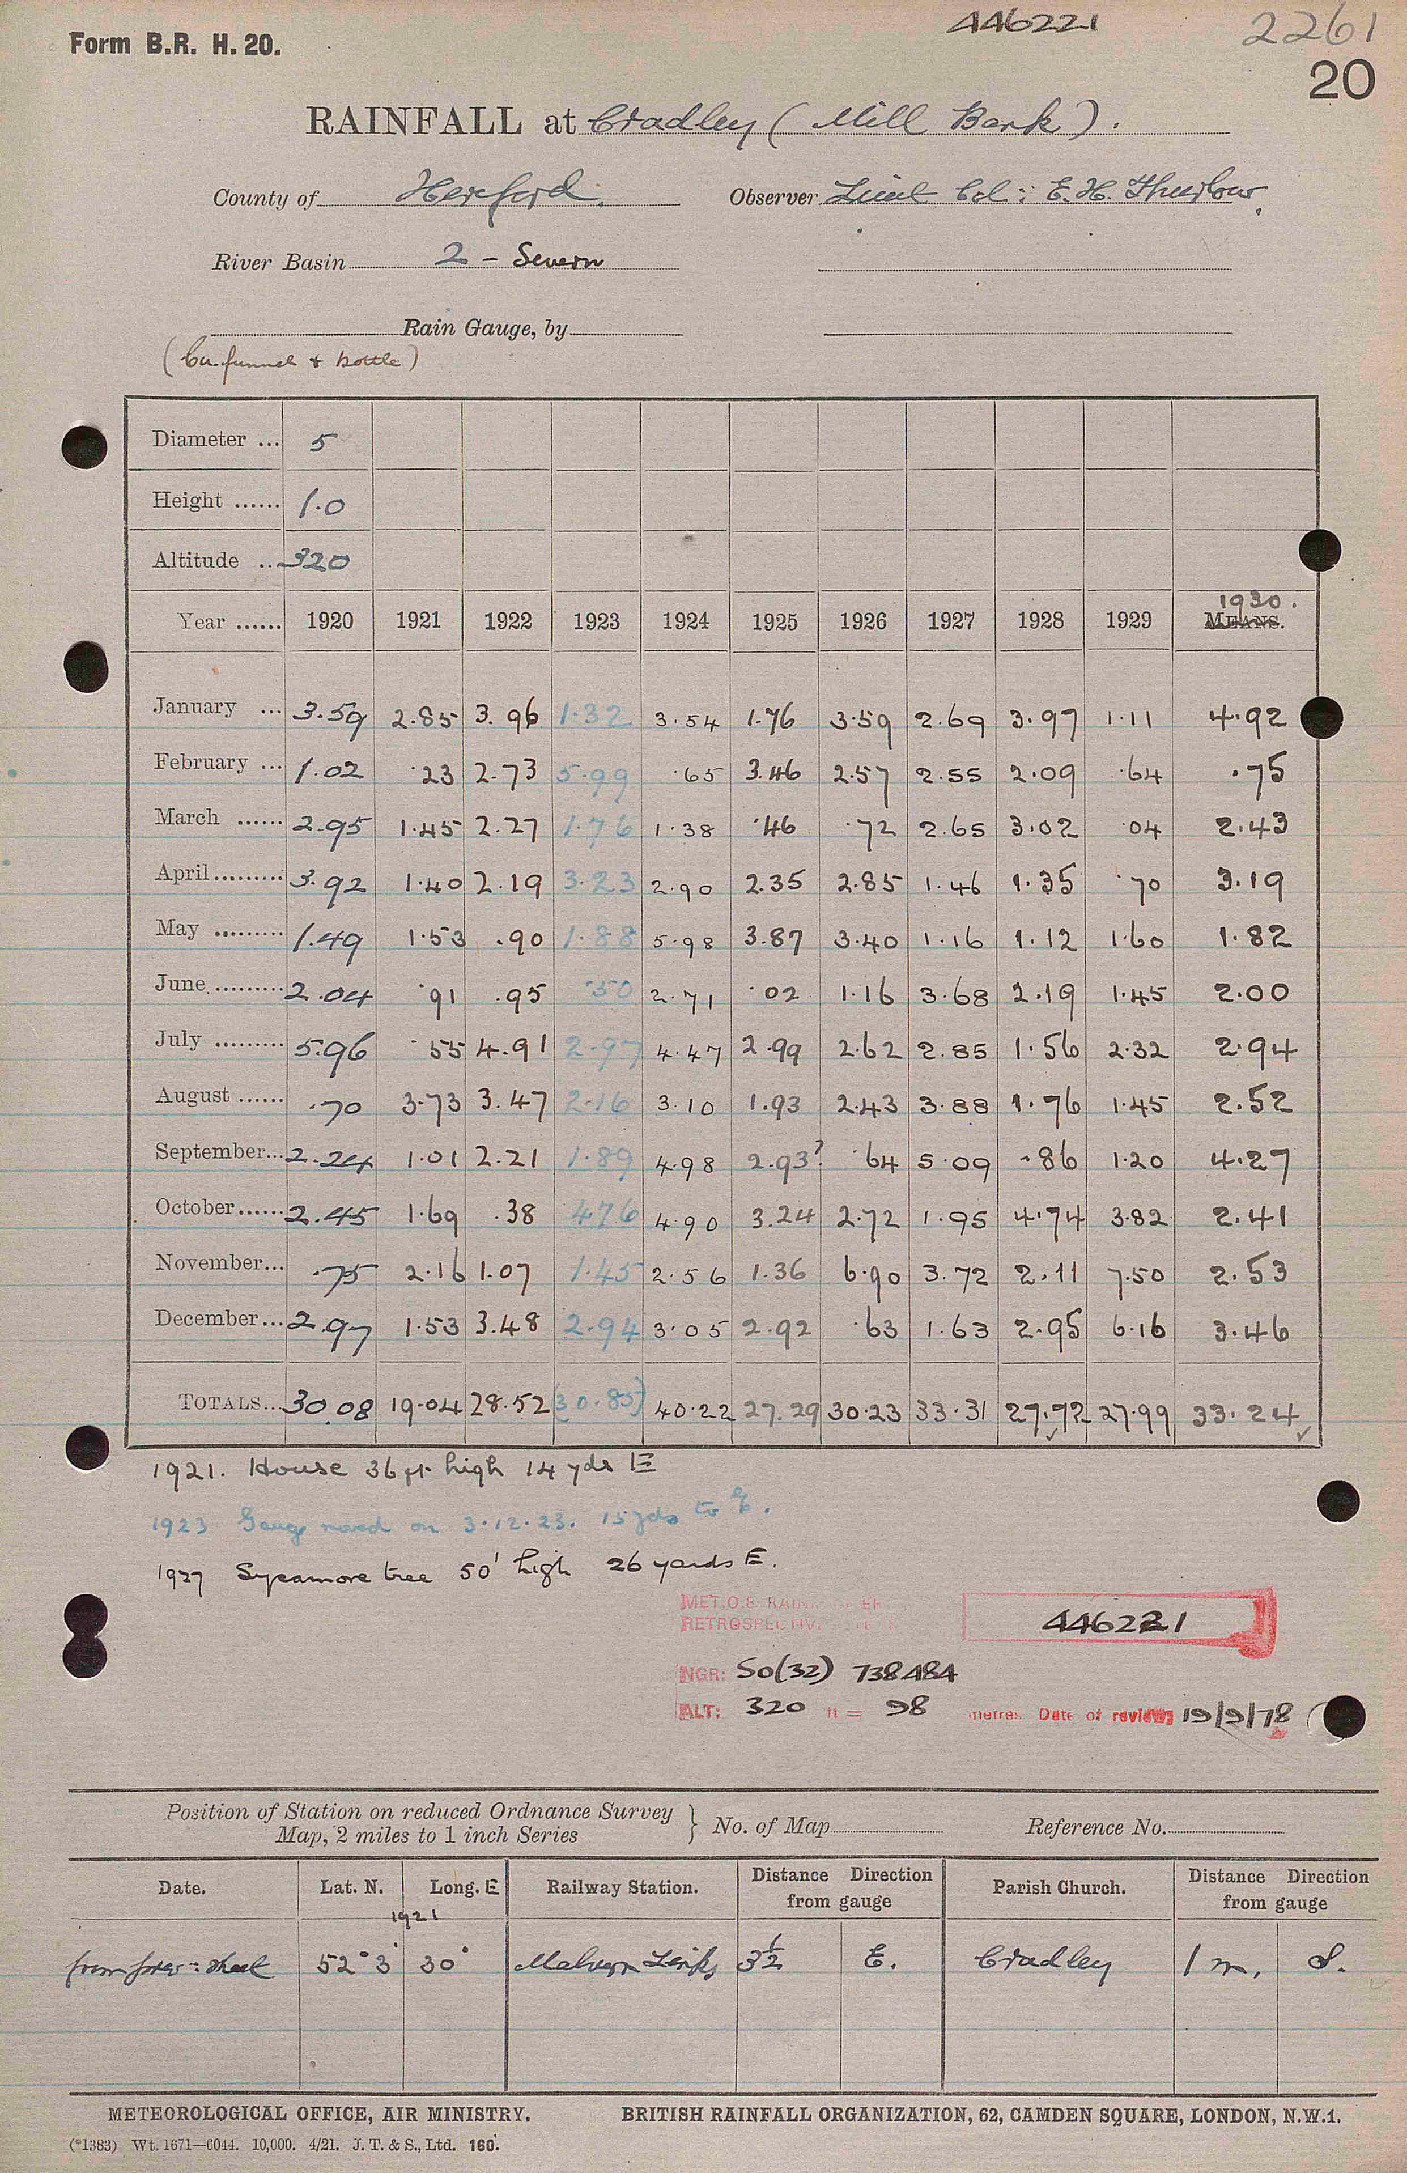 446221 2261
Form B.R. H. 20.
20
RAINFALL at Cradley ( Mill Bank ).
County of Hereford. Observer Lieut Col: E. H. Thurlow.
River Basin 2 - Severn
Rain Gauge, by
(Cu. funnel + bottle)
Diameter ... 5
Height ...... 1.0
Altitude .. 320
Year ...... 1920 1921 1922 1923 1924 1925 1926 1927 1928 1929 1930. MEANS.
January ... 3.59 2.85 3.96 1.32 3.54 1.76 3.59 2.69 3.97 1.11 4.92
February ... 1.02 .23 2.73 5.99 .65 3.46 2.57 2.55 2.09 .64 .75
March ...... 2.95 1.45 2.27 1.76 1.38 .46 .72 2.65 3.02 .04 2.43
April......... 3.92 1.40 2.19 3.23 2.90 2.35 2.85 1.46 1.35 .70 3.19
May ......... 1.49 1.53 .90 1.88 5.98 3.87 3.40 1.16 1.12 1.60 1.82
June.......... 2.04 .91 .95 .50 2.71 .02 1.16 3.68 2.19 1.45 2.00
July ......... 5.96 .55 4.91 2.97 4.47 2.99 2.62 2.85 1.56 2.32 2.94
August ...... .70 3.73 3.47 2.16 3.10 1.93 2.43 3.88 1.76 1.45 2.52
September... 2.24 1.01 2.21 1.89 4.98 2.93? .64 5.09 .86 1.20 4.27
October...... 2.45 1.69 .38 4.76 4.90 3.24 2.72 1.95 4.74 3.82 2.41
November... .75 2.16 1.07 1.45 2.56 1.36 6.90 3.72 2.11 7.50 2.53
December... 2.97 1.53 3.48 2.94 3.05 2.92 .63 1.63 2.95 6.16 3.46
TOTALS... 30.08 19.04 28.52 (30.85) 40.22 27.29 30.23 33.31 27.72 27.99 33.24
1921. House 36 ft. high 14 yds E
1923 Gauge moved on 3.12.23. 15 yds to
1927 Sycamore tree 50' high 26 yards E.
MET.O.8
RETROSPECTIVE
446221
NGR: SO(32) 738484
ALT: 320 ft = 98 metres Date of review: 19/9/78
Position of Station on reduced Ordnance Survey Map, 2 miles to 1 inch Series } No. of Map Reference No.
Date. Lat. N. Long. E Railway Station. Distance Direction from gauge Parish Church. Distance Direction from gauge
1921
from sheet 52° 3' 30" Malvern Link 3½ E. Cradley 1 m. S.
METEOROLOGICAL OFFICE, AIR MINISTRY. BRITISH RAINFALL ORGANIZATION, 62, CAMDEN SQUARE, LONDON, N.W.1.
(*1383) Wt. 1671—6044. 10,000. 4/21. J. T. & S., Ltd. 160.